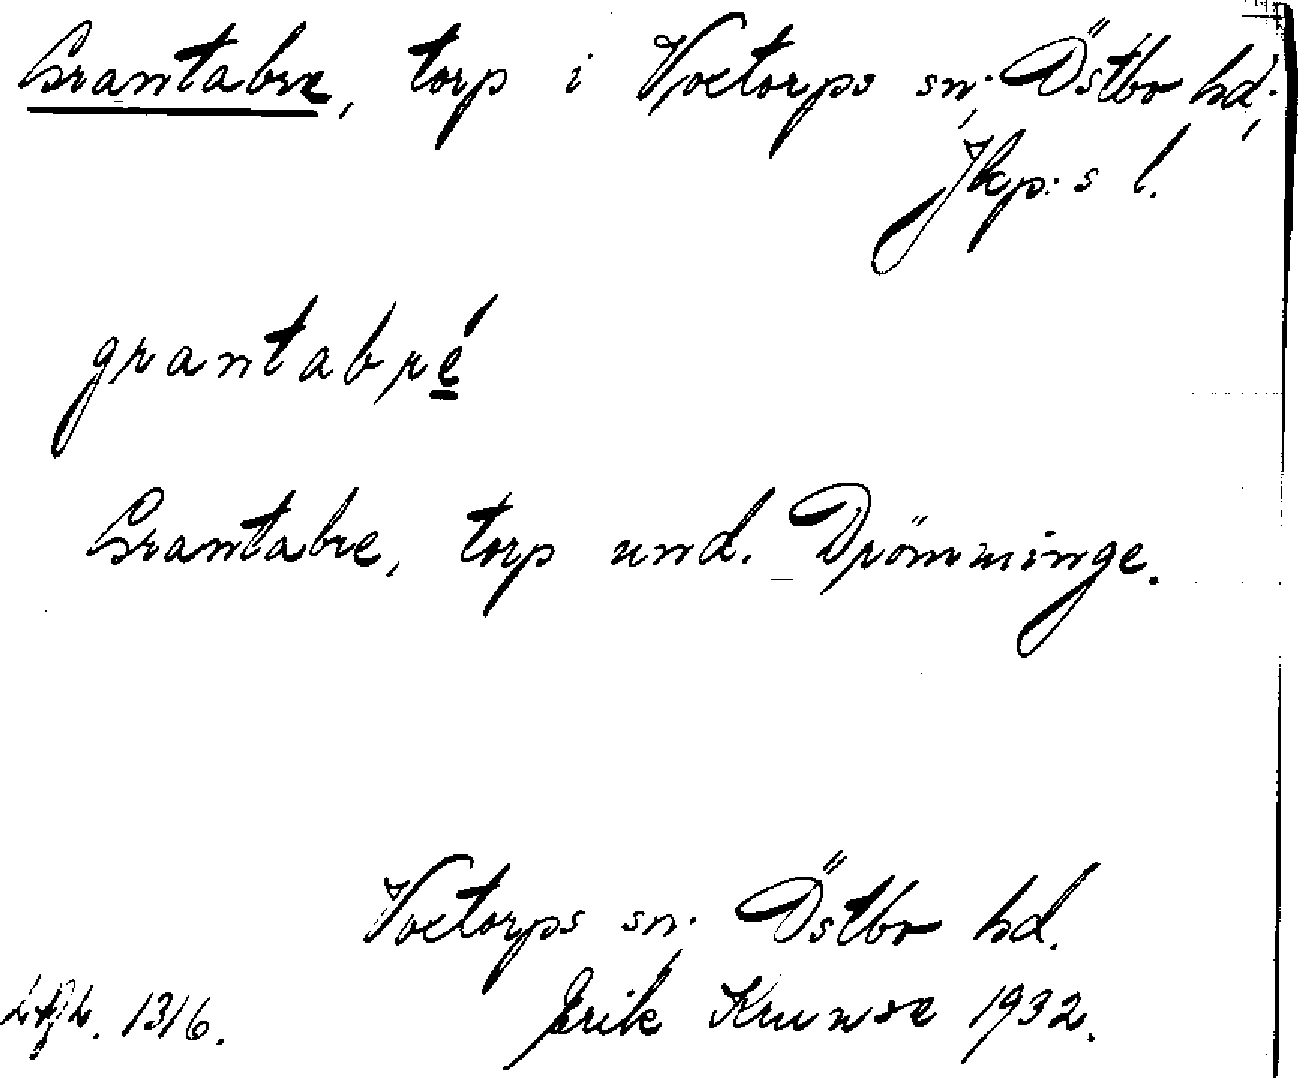 Grantabre, torp i Voetorps sn; Östbo hd;
Jkp:s l.
grantabré
Grantabre, torp und. Drömminge.
Voetorps sn. Östbo hd.
1316. Erik Krunse 1932.